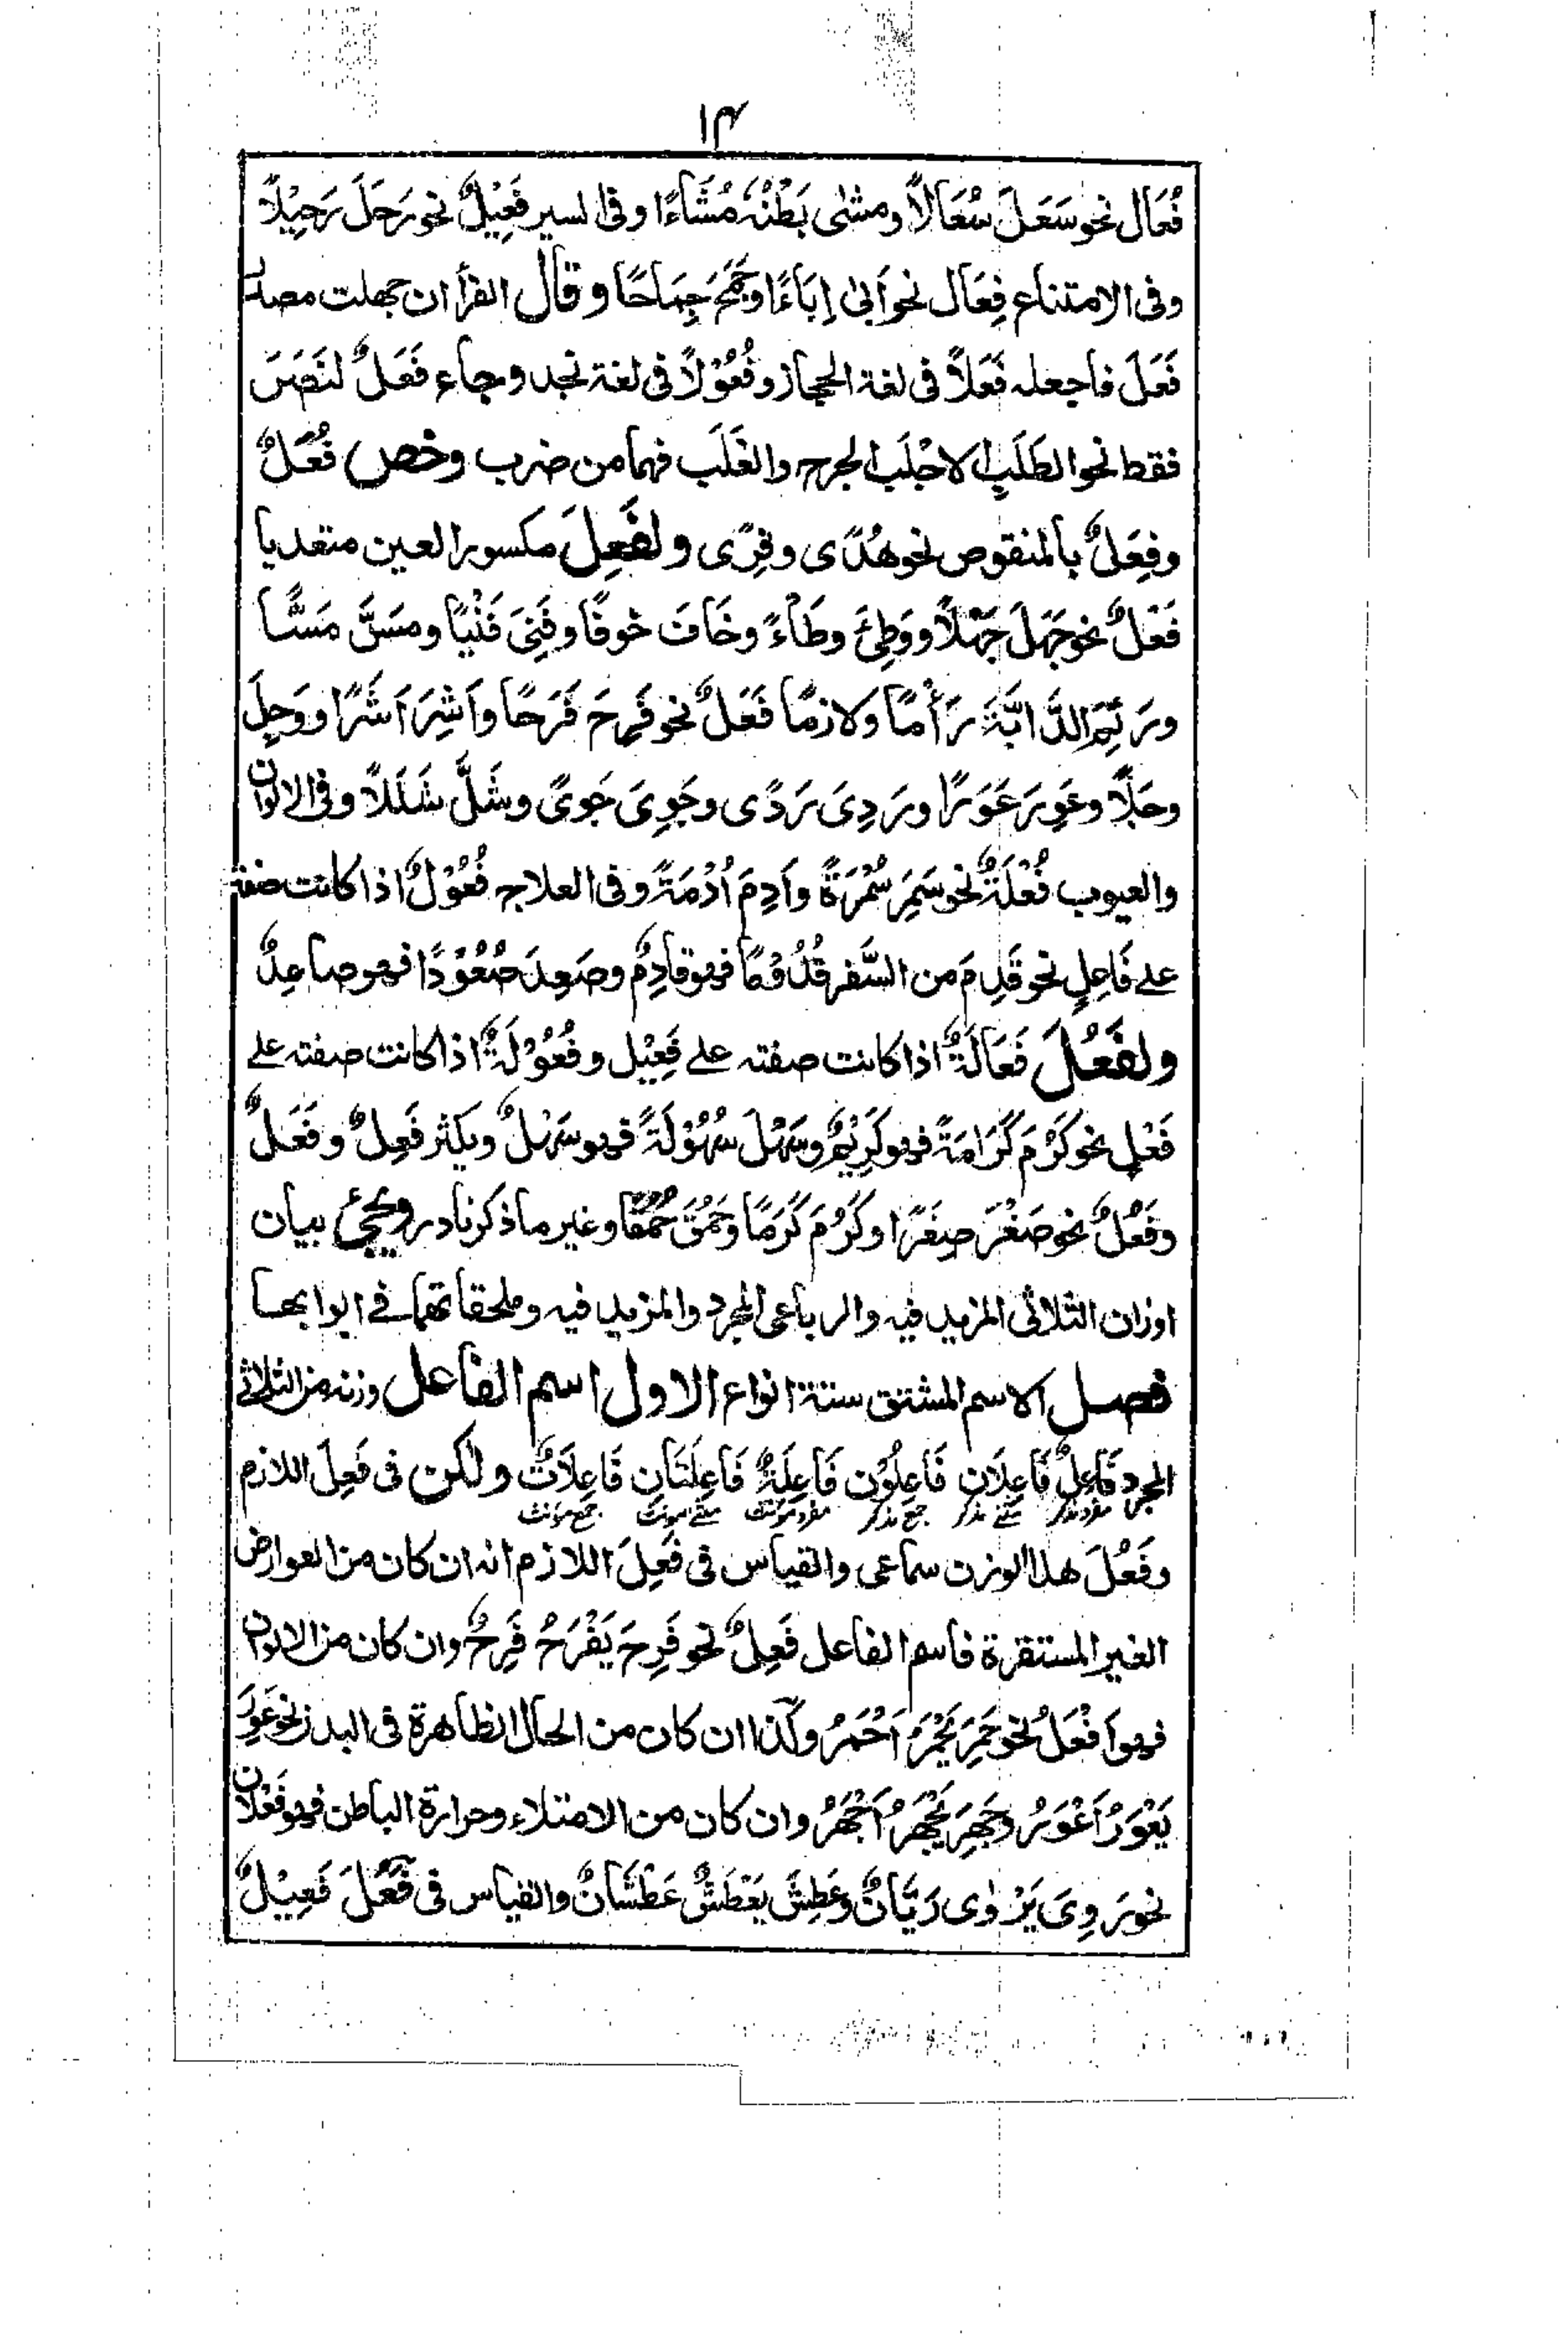 ۱۴
فُعَال نحو سَعَلَ سُعَالًا ومشٰی بَطْنُہٗ مُشَاءًا وفی السیر فَعِیْلٌ نحو رَحَلَ رَحِیْلًا
وفی الامتناع فِعَال نحو اَبیٰ اِبَاءًا وجَمَحَ جِمَاحًا وقال الفرأ ان جھلت مصدر
فَعَلَ فاجعلہ فَعْلًا فی لغۃ الحجاز وفُعُوْلًا فی لغۃ نجد وجاء فَعَلٌ لنَصَرَ
فقط نحو الطَلَب الا جَلَب الجرح والغَلَب فہما من ضرب وخص فُعَلٌ
وفِعَلٌ بالمنقوص نحو ھُدًی وقِرًی ولفَعِلَ مکسور العین متعدیا
فَعْلٌ نحو جَہِلَ جَہْلًا ووَطِئَ وطَأْءً وخَافَ خَوفًا وفَنِیَ فَنْیًا ومَسَّ مَسًّا
ورَئِمَ الدَّابَّۃَ رَأْمًا ولازمًا فَعَلٌ نحو فَرِحَ فَرَحًا واَشِرَ اَشَرًا ووَجِلَ
وجَلًا وعَوِرَ عَوَرًا ورَدِیَ رَدًی وجَوِیَ جَویً وشَلَّ شَلَلًا وفی الالوان
والعیوب فُعْلَۃٌ نحو سَمِرَ سُمْرَۃً واَدِمَ اُدْمَۃً وفی العلاج فُعُوْلٌ اذا کانت صفتہ
علے فَاعِلٍ نحو قَدِمَ من السَّفر قُدُوْمًا فہو قادِمٌ وصَعِدَ صُعُوْدًا فہو صاعِدٌ
ولفَعُلَ فَعَالَۃٌ اذا کانت صفتہ علے فَعِیْل وفُعُوْلَۃٌ اذا کانت صفتہ علے
فَعْلٍ نحو کَرُمَ کَرَامَۃً فہو کَرِیْمٌ وسَہُلَ سُہُوْلَۃً فہو سَہْلٌ ویکثر فَعِلٌ وفَعَلٌ
وفُعْلٌ نحو صَغُرَ صِغَرًا وکَرُمَ کَرَمًا وحَمُقَ حُمْقًا وغیر ما ذکر نادر ویجیٔ بیان
اوزان الثلاثی المزید فیہ والرباعی المجرد والمزید فیہ وملحقاتھما فے ابوابھا
فصل الاسم المشتق ستۃ انواع الاول اسم الفاعل وزنہ من الثلاثی
المجرد فَاعِلٌ فَاعِلَانِ فَاعِلُوْن فَاعِلَۃٌ فَاعِلَتَانِ فَاعِلَاتٌ ولٰکن فی فَعِلَ اللازم
مفرد مذکر تثنے مذکر جمع مذکر مفرد مؤنث تثنے مؤنث جمع مؤنث
وفَعُلَ ھذا الوزن سماعی والقیاس فی فَعِلَ اللازم انہ ان کان من العوارض
الغیر المستقرۃ فاسم الفاعل فَعِلٌ نحو فَرِحَ یَفْرَحُ فَرِحٌ وان کان من الالوان
فہو اَفْعَلُ نحو حَمِرَ یَحْمَرُ اَحْمَرُ وکذا ان کان من الحال الظاھرۃ فی البدن نحو عَوِرَ
یَعْوَرُ اَعْوَرُ وجَہِرَ یَجْہَرُ اَجْہَرُ وان کان من الامتلاء وحرارۃ الباطن فہو فَعْلَان
نحو رَوِیَ یَرْوٰی رَیَّانٌ وعَطِشَ یَعْطَشُ عَطْشَانٌ والقیاس فی فَعُلَ فَعِیْلٌ